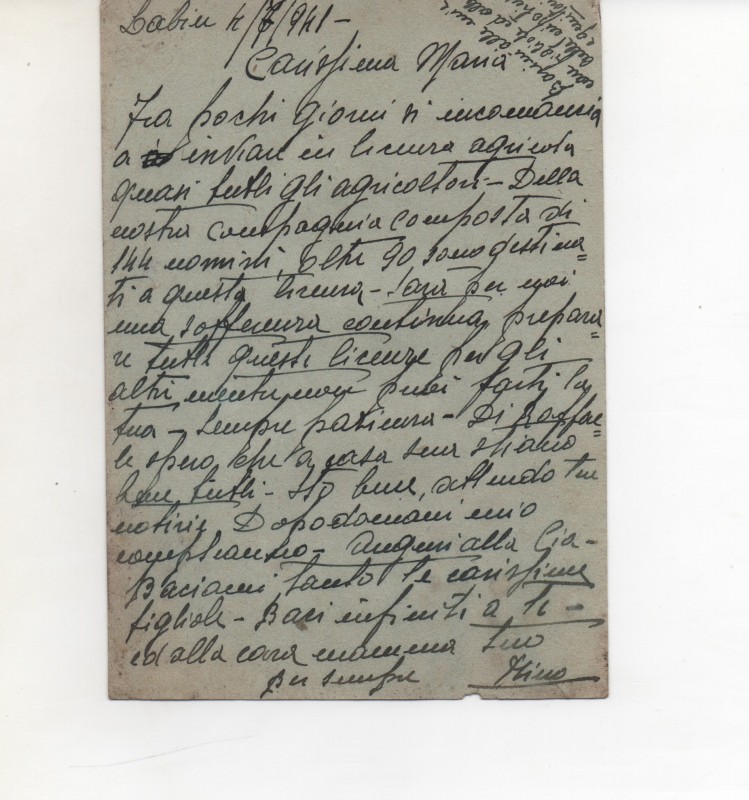 4/7/941 -
Carissima Maria
Fra pochi giorni si incomincia
a inviare in licenza agricola
quasi tutti gli agricoltori - Della
nostra compagnia composta di
144 uomini, oltre 90 sono destina=
ti a questa licenza - Sarà per noi
una sofferenza continua, prepara=
re tutte queste licenze per gli
altri mentre non puoi farti la
tua - Sempre pazienza - Di Raffae=
le spero che a casa sua stiano
bene tutti - Sto bene, attendo tue
notizie Dopodomani mio
compleanno - Auguri alla Cia -
Baciami tanto le carissime
figliole - Baci infiniti a te -
ed alla cara mamma tuo
Per sempre Nino